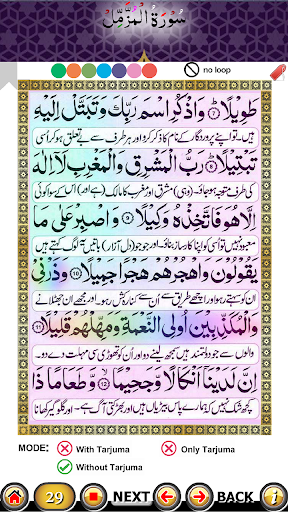 سُوْرَةُ الْمُزَّمِّلِ
no loop
طَوِيْلًا ۝٧ وَاذْكُرِ اسْمَ رَبِّكَ وَتَبَتَّلْ اِلَيْهِ
ہیں۔ تو اپنے پروردگار کے نام کا ذکر کرو اور ہر طرف سے بے تعلق ہو کر اُسی
تَبْتِيْلًا ۝٨ رَبُّ الْمَشْرِقِ وَالْمَغْرِبِ لَاۤ اِلٰهَ
کی طرف متوجہ ہو جاؤ۔ (وہی) مشرق اور مغرب کا مالک (ہے اور) اس کے سوا کوئی
اِلَّا هُوَ فَاتَّخِذْهُ وَكِيْلًا ۝٩ وَاصْبِرْ عَلٰى مَا
معبود نہیں تو اسی کو اپنا کارساز بناؤ۔ اور جو جو (دل آزار) باتیں یہ لوگ کہتے ہیں
يَقُوْلُوْنَ وَاهْجُرْهُمْ هَجْرًا جَمِيْلًا ۝١٠ وَذَرْنِيْ
ان کو سہتے رہو اور اچھے طریق سے ان سے کنارہ کش رہو۔ اور مجھے ان جھٹلانے
وَالْمُكَذِّبِيْنَ اُولِى النَّعْمَةِ وَمَهِّلْهُمْ قَلِيْلًا ۝١١
والوں سے جو دولتمند ہیں سمجھ لینے دو اور ان کو تھوڑی سی مہلت دے دو۔
اِنَّ لَدَيْنَاۤ اَنْكَالًا وَّجَحِيْمًا ۝١٢ وَّطَعَامًا ذَا
کچھ شک نہیں کہ ہمارے پاس بیڑیاں ہیں اور بھڑکتی آگ ہے۔ اور گلوگیر کھانا
MODE: With Tarjuma Only Tarjuma
Without Tarjuma
29 NEXT BACK i